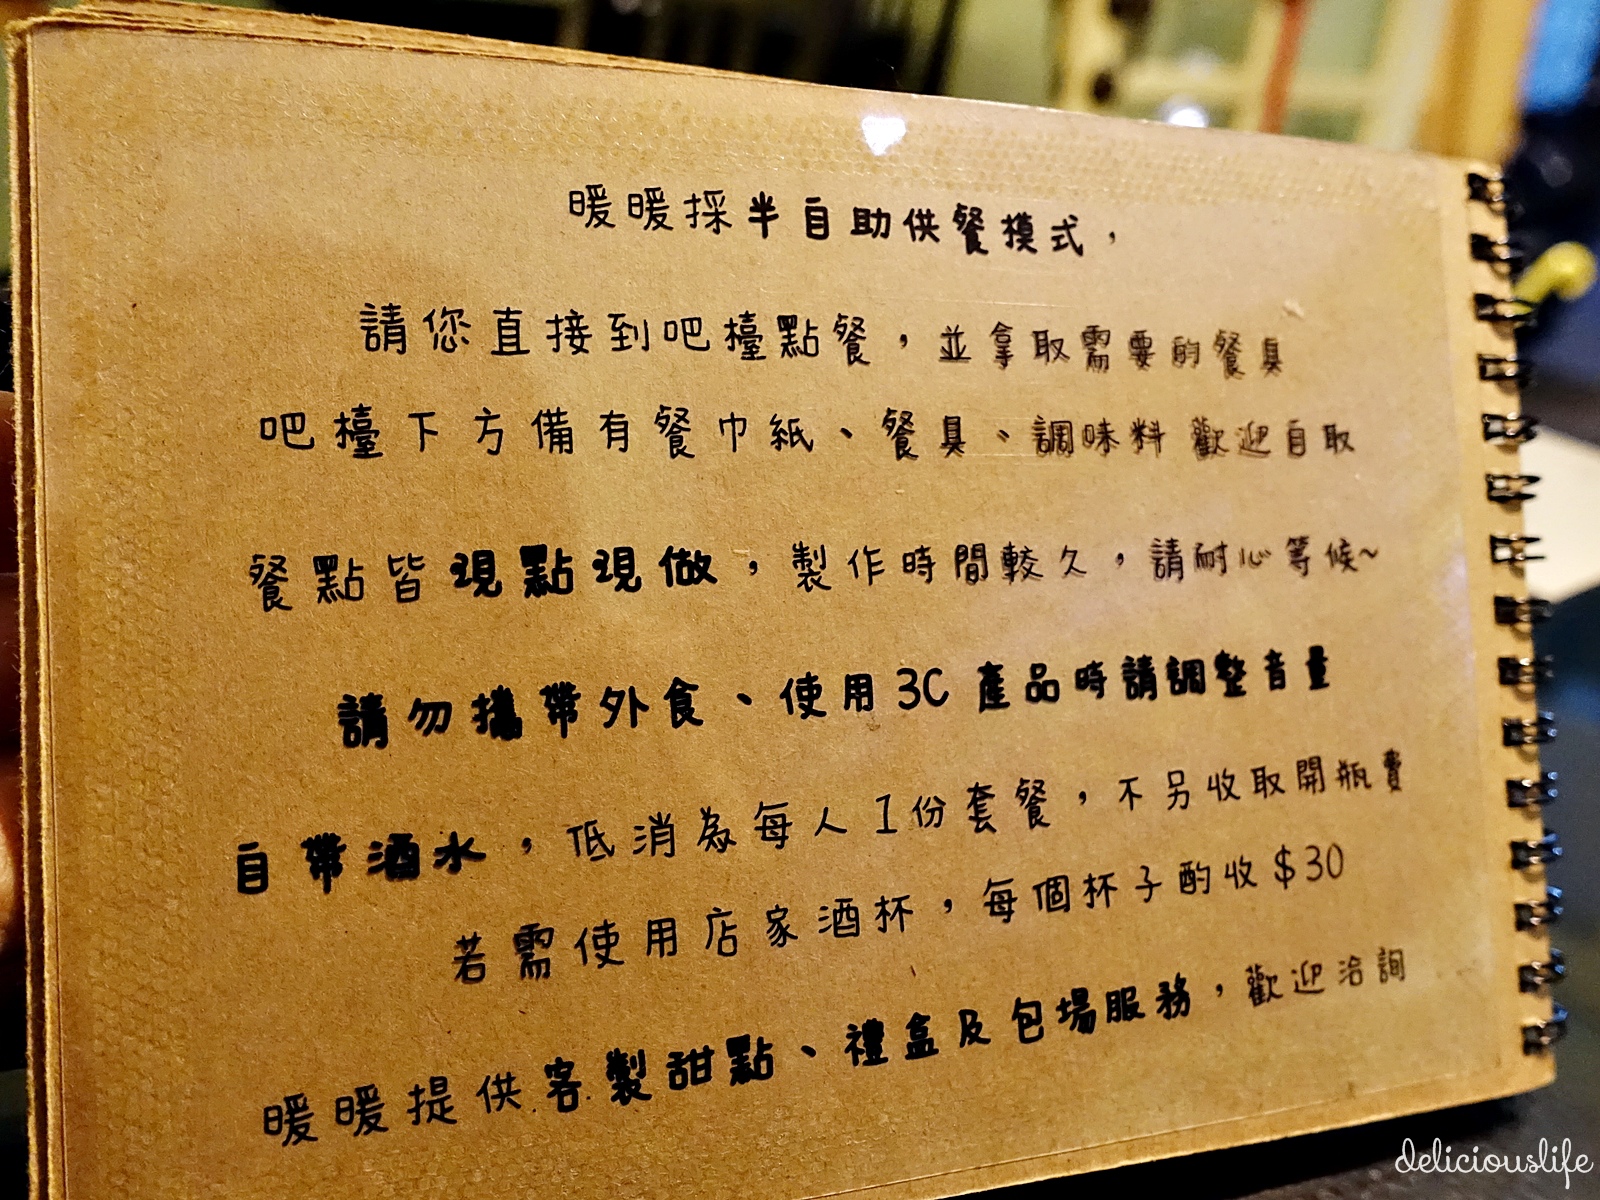 暖暖採半自助供餐模式，
請您直接到吧檯點餐，並拿取需要的餐具
吧檯下方備有餐巾紙、餐具、調味料 歡迎自取
餐點皆現點現做，製作時間較久，請耐心等候~
請勿攜帶外食、使用3C產品時請調整音量
自帶酒水，低消為每人1份套餐，不另收取開瓶費
若需使用店家酒杯，每個杯子酌收$30
暖暖提供客製甜點、禮盒及包場服務，歡迎洽詢
deliciouslife